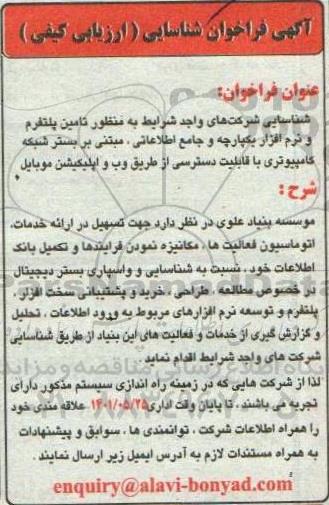 آگهی فراخوان شناسایی ( ارزیابی کیفی )
عنوان فراخوان:
شناسایی شرکت‌های واجد شرایط به منظور تامین پلتفرم
و نرم افزار یکپارچه و جامع اطلاعاتی ، مبتنی بر بستر شبکه
کامپیوتری با قابلیت دسترسی از طریق وب و اپلیکیشن موبایل
شرح :
موسسه بنیاد علوی در نظر دارد جهت تسهیل در ارائه خدمات،
اتوماسیون فعالیت ها ، مکانیزه نمودن فرایندها و تکمیل بانک
اطلاعات خود ، نسبت به شناسایی و واسپاری بستر دیجیتال
در خصوص مطالعه ، طراحی ، خرید و پشتیبانی سخت افزار ،
پلتفرم و توسعه نرم افزارهای مربوط به ورود اطلاعات ، تحلیل
و گزارش گیری از خدمات و فعالیت های این بنیاد از طریق شناسایی
شرکت های واجد شرایط اقدام نماید .
لذا از شرکت هایی که در زمینه راه اندازی سیستم مذکور دارای
تجربه می باشند ، تا پایان وقت اداری ۱۴۰۱/۰۵/۲۵ علاقه مندی خود
را همراه اطلاعات شرکت ، توانمندی ها ، سوابق و پیشنهادات
به همراه مستندات لازم به آدرس ایمیل زیر ارسال نمایند .
enquiry@alavi-bonyad.com